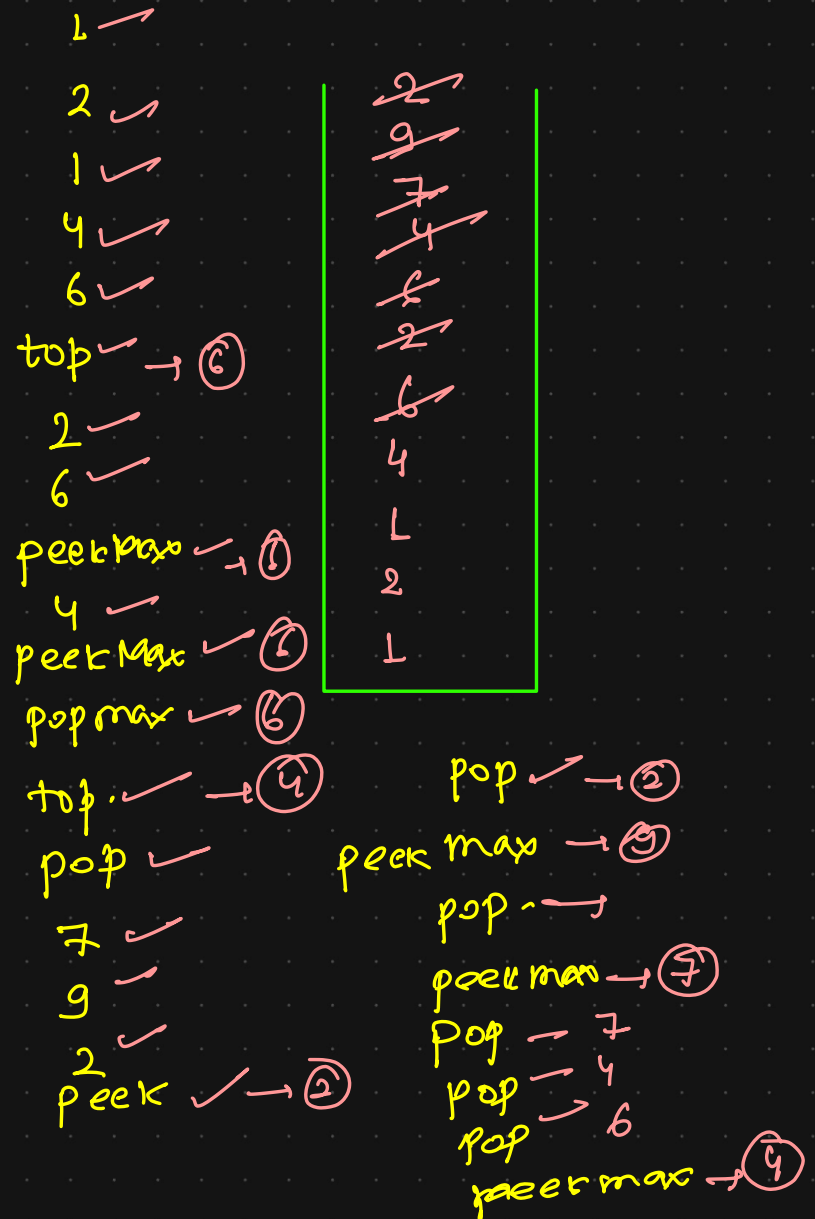 1
2
1
4
6
top → 6
2
6
peekMax →
4
peekMax
popmax 6
top. → 4
pop
7
9
2
peek → 2
2
9
7
4
6
2
6
4
1
2
1
pop → 2
peek max → 9
pop →
peek max → 7
pop – 7
pop – 4
pop – 6
peek max → 4